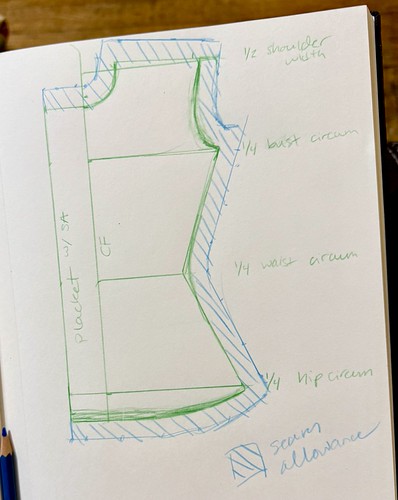 1/2 shoulder
width
1/4 bust circum
placket w/ SA
CF
1/4 waist circum
1/4 hip circum
seam
allowance